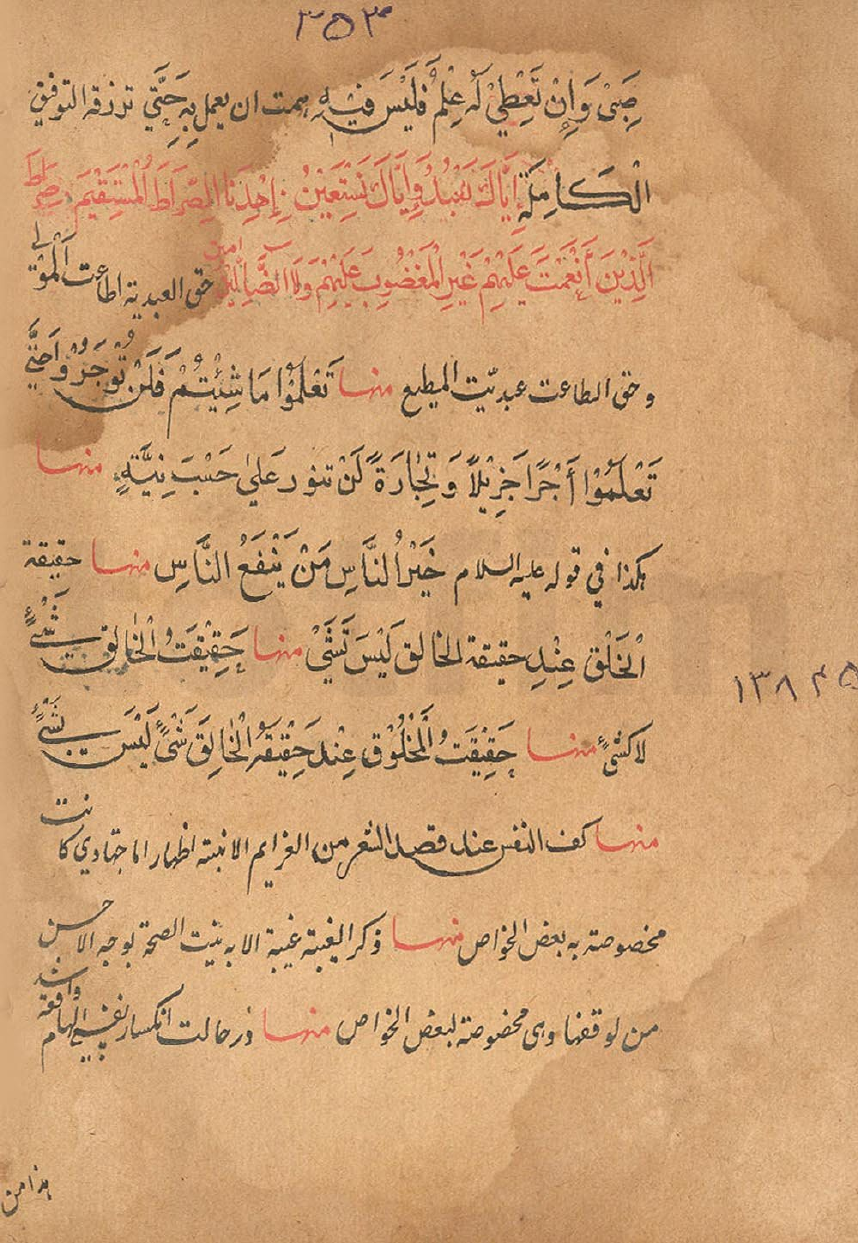 ٣٥٣
صَبِيْ وَاِنْ تَعْطِيْ لَهُ عِلْمٌ فَلَيْسَ فِيْهِ همت ان يعمل بِهِ حَتّٰي ترزقه التوفيق
الْكَامِلَةِ اِيَّاكَ نَعْبُدُ وَاِيَّاكَ نَسْتَعِيْنُ اِهْدِنَا الصِّرَاطَ الْمُسْتَقِيْمَ صِرَاطَ
الَّذِيْنَ اَنْعَمْتَ عَلَيْهِمْ غَيْرِ الْمَغْضُوْبِ عَلَيْهِمْ وَلَا الضَّالِّيْنَ امين حق العبدية اطاعت الْمَوْلٰي
و حق الطاعت عبديّت المطيع منها تَعْلَمُوْا مَا شِئْتُمْ فَلَنْ تُوْجَرُوْا حَتّٰي
تَعْلَمُوْا اَجْرًا جَزِيْلًا وَ تِجَارَةً لَنْ تبور عَلٰي حَسْبَ نِيَّةٍ منها
هكذا في قوله عليه السلام خَيْرُ النَّاسِ مَنْ يَنْفَعُ النَّاسِ منها حقيقة
الْخَلْقِ عِنْدِ حقيقة الخالق لَيْسَ بَشَيْ منها حَقِيْقَتُ الْخَالِقِ شَيْءٌ
لا كشيٍ منها حَقِيْقَتُ الْمَخْلُوْقِ عِنْدَ حَقِيْقَةِ الْخَالِقَ شَيْءٌ لَيْسَ بَشَيْءٍ
١٣٨٢٥
منها كف النفس عند قصد الشعر من العزايم الا نبته اظهار الاجتهادي كانت
مخصوصته به بعض الخواص منها ذكر الغيبة غيبة الا به نيت الصحة بوجه الاحسن
من لو قفها وهي مخصوصة لبعض الخواص منها در حالت انكسار نفسي الهام وافعه
هذا من